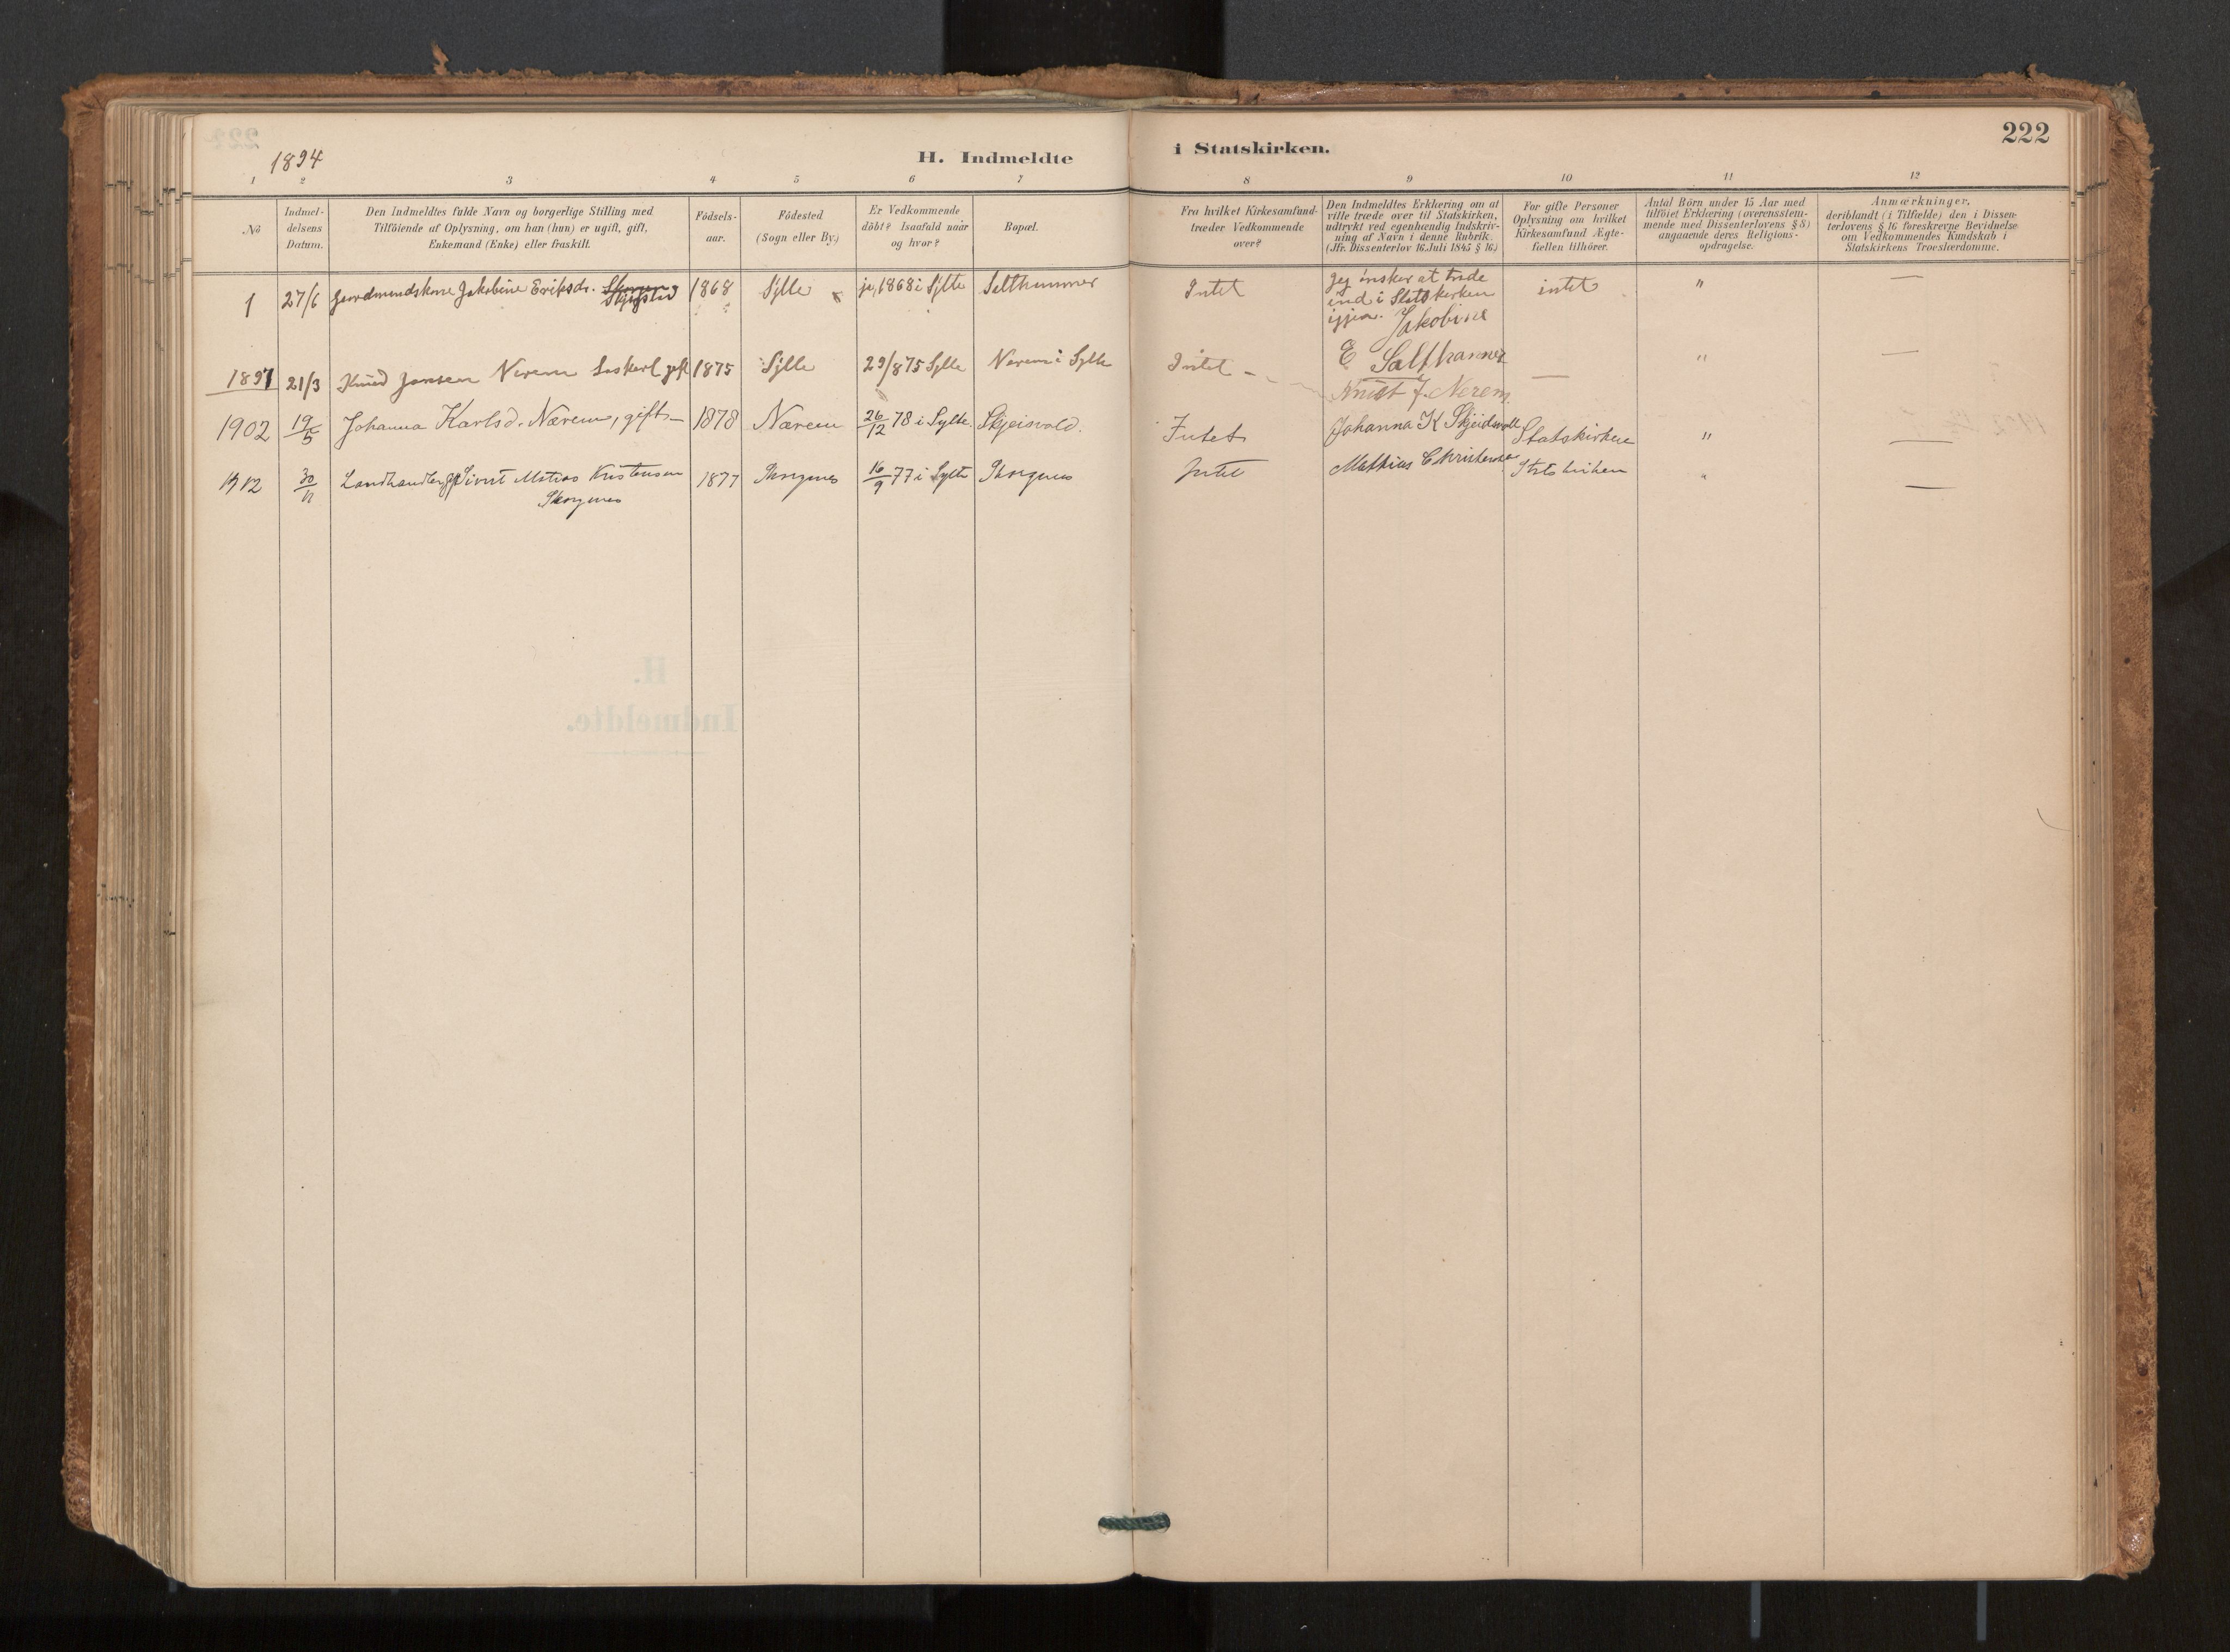 222
1894
H. Indmeldte i Statskirken.
1 2 3 4 5 6 7 8 9 10 11 12
No
Indmeldelsens Datum.
Den Indmeldtes fulde Navn og borgerlige Stilling med
Tilföiende af Oplysning, om han (hun) er ugift, gift,
Enkemand (Enke) eller fraskilt.
Födselsaar.
Födested
(Sogn eller By.)
Er Vedkommende
döbt? Isaafald naar
og hvor?
Bopæl.
Fra hvilket Kirkesamfund
træder Vedkommende
over?
Den Indmeldtes Erklæring om at
ville træde over til Statskirken,
udtrykt ved egenhændig Indskriv-
ning af Navn i denne Rubrik.
(Jfr. Dissenterlov 16. Juli 1845 § 16.)
For gifte Personer
Oplysning om hvilket
Kirkesamfund Ægte-
fællen tilhörer.
Antal Börn under 15 Aar med
tilföiet Erklæring (overensstem-
mende med Dissenterlovens § 8)
angaaende deres Religions-
opdragelse.
Anmærkninger,
deriblandt (i Tilfælde) den i Dissen-
terlovens § 16 foreskrevne Bevidnelse
om Vedkommendes Kundskab i
Statskirkens Troeslærdomme.
1 27/6 Jakobine Eriksdr. 1868 Sylte ja, 1868 i Sylte Salthammer Intet Jeg önsker at træde intet "
ind i Statskirken
igjen. Jakobine
E Salthammer
1897 21/3 Knud Jonsen Nerem gift 1875 Sylte 29/8 75 Sylte Nerem i Sylte Intet — — "
Knut J. Nerem
1902 19/5 Johanna Karlsd. Nærem, gift — 1878 Nærem 26/12 78 i Sylte. Skjeisvold. Intet Johanna K Skjeidsvoll Statskirken "
1912 30/11 Landhandler gift Sivert Matias Kristensen 1877 Skorgenes 16/9 77 i Sylte Skorgenes Intet Mathias E Kristensen Statskirken "
Skorgenes
H.
Indmeldte.